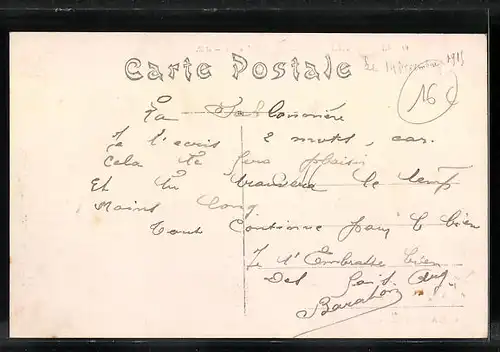 Carte Postale
le 14 1915
16 C
La Sablonnière
Je t'ecris 2 mots, car
cela te fera plaisir
Et tu trouvera le temp
moins long
tout continue pour le bien
Je t'Embrasse bien
Des fois
Barathon